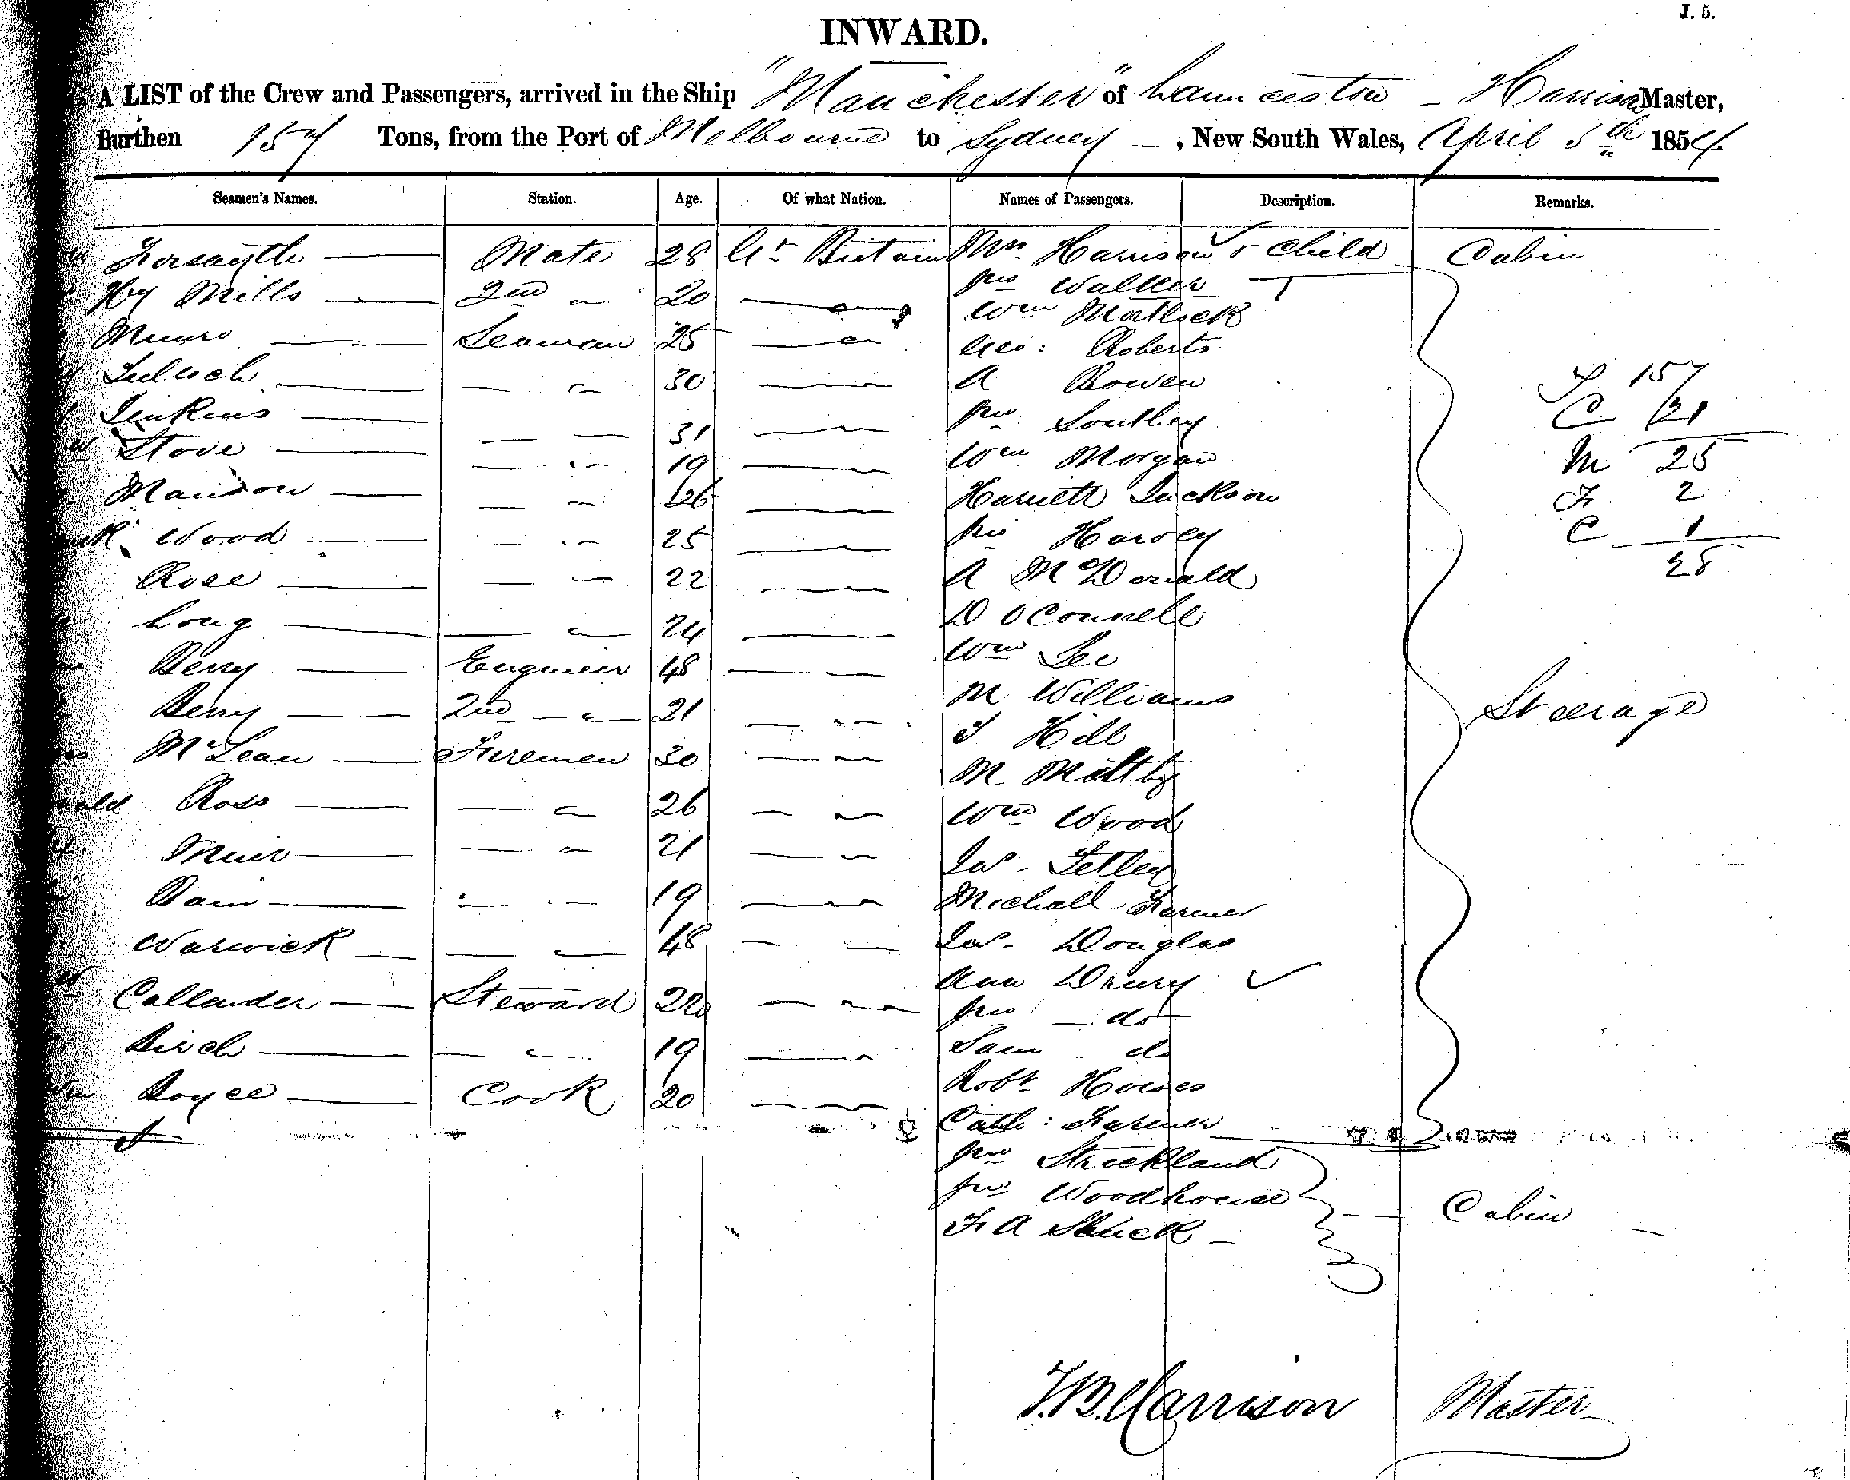 J. 5.
INWARD.
A LIST of the Crew and Passengers, arrived in the Ship "Manchester" of Launceston - Harrison Master,
Burthen 157 Tons, from the Port of Melbourne to Sydney - , New South Wales, April 5th 1854
Seamen's Names. Station. Age. Of what Nation. Names of Passengers. Description. Remarks.
Forsayth Mate 28 Gt Britain Mrs Harrison & child Cabin
Hy Mills 2nd " 20 " Jno Walker
Wm Matlock
Munro Seaman 25 " Geo: Roberts
Tulloch " 30 A Bowen T 157
Jenkins 31 Jno Southey C /21
Stove " 19 Wm Morgan M 25
" 26 Harriett Jackson F 2
Wood " 25 Jno Harvey C 1
Rose " 22 A McDonald 28
Long " 24 D O'Connell
Berry Engineer 48 Wm Lee
Berry 2nd " 21 " M Williams Steerage
J Hill
McLean Firemen 30 " M Maltby
Ross " 26 " Wm Wood
Muir " 21 " Jas Tetley
Bain " 19 " Michall Farmer
Warwick " 48 Jas Douglas
Ann Drury
Callander Steward 22 " Jno do
Birch " 19 Sam do
Boyce Cook 20 Robt Howes
Cath: Farmer
Jno Strickland
Jno Woodhouse Cabin
F A Shuck
T.B. Harrison Master